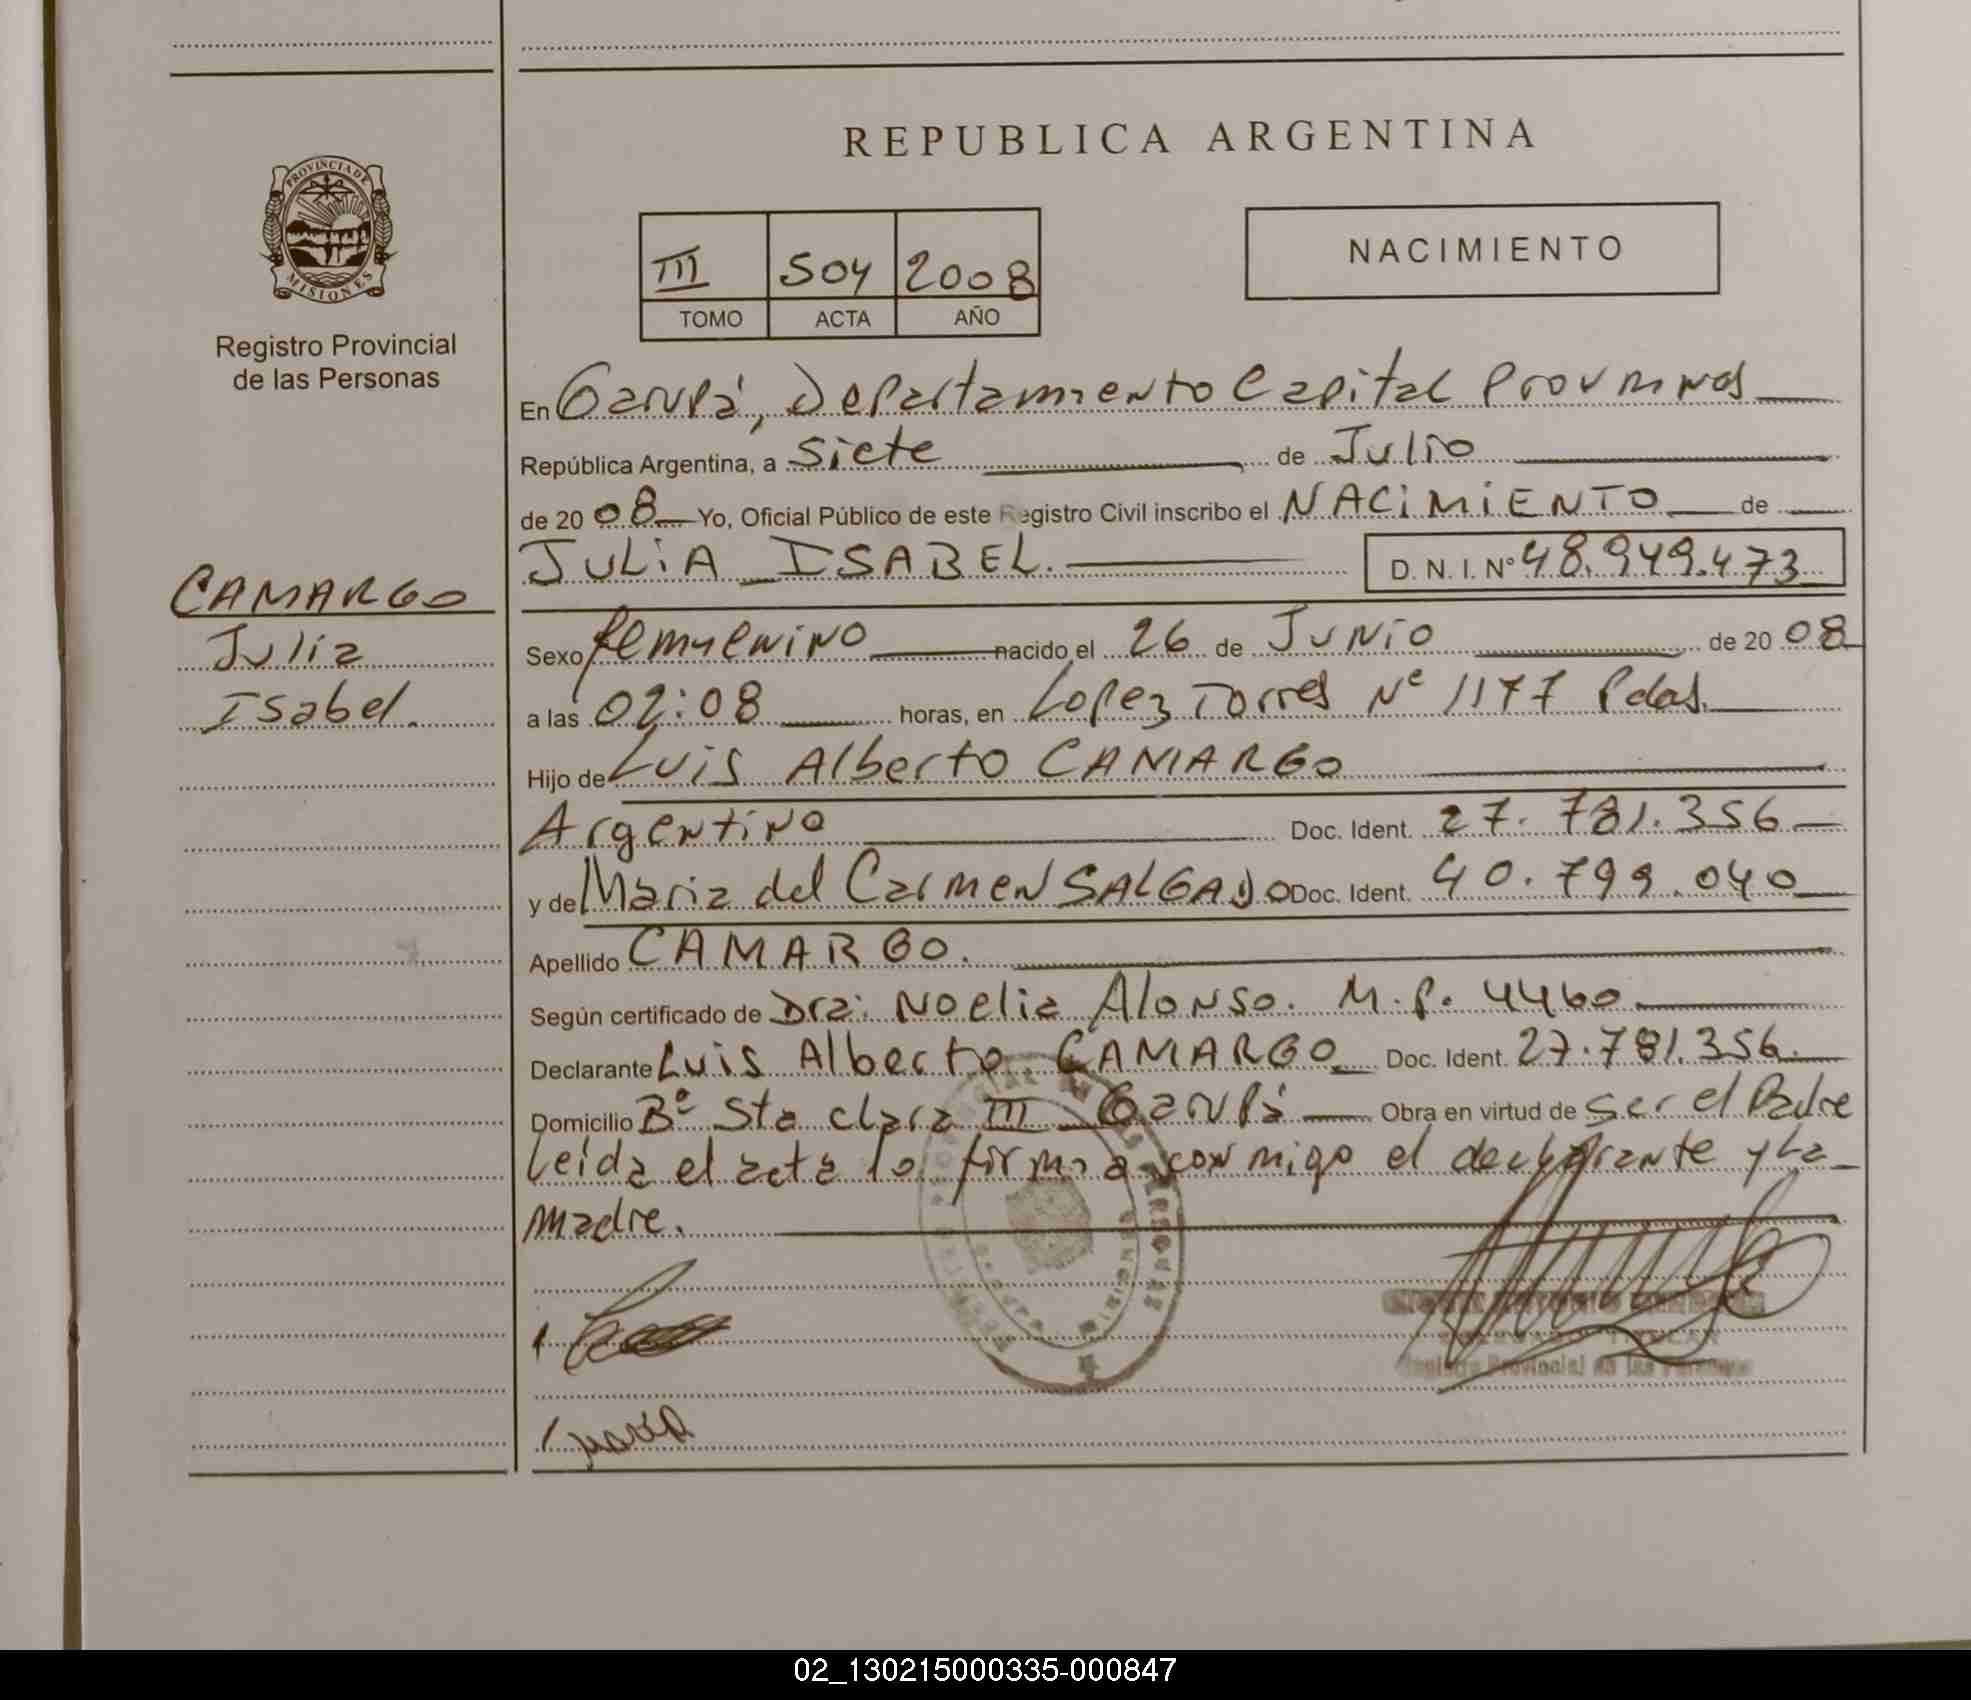 REPUBLICA ARGENTINA
PROVINCIA DE
MISIONES
Registro Provincial
de las Personas
III 504 2008
TOMO ACTA AÑO
NACIMIENTO
En Garupá, Departamento Capital
República Argentina, a siete de Julio
de 2008 Yo, Oficial Público de este Registro Civil inscribo el NACIMIENTO de
JULIA ISABEL. D. N. I. N° 48.949.473
CAMARGO
Julia
Isabel.
Sexo nacido el 26 de Junio de 2008
a las 02:08 horas, en Lopez Torres N° 1177 Pdas.
Hijo de Luis Alberto CAMARGO
Argentino Doc. Ident. 27.781.356
y de Maria del Carmen SALGADO Doc. Ident. 40.799.040
Apellido CAMARGO.
Según certificado de Dra: Noelia Alonso. M.P. 4460
Declarante Luis Alberto CAMARGO Doc. Ident. 27.781.356.
Domicilio B° Sta Clara III Garupá Obra en virtud de ser el Padre
Leída el acta la firma conmigo el declarante y La
madre.
Registro Provincial de las Personas
María
02_130215000335-000847